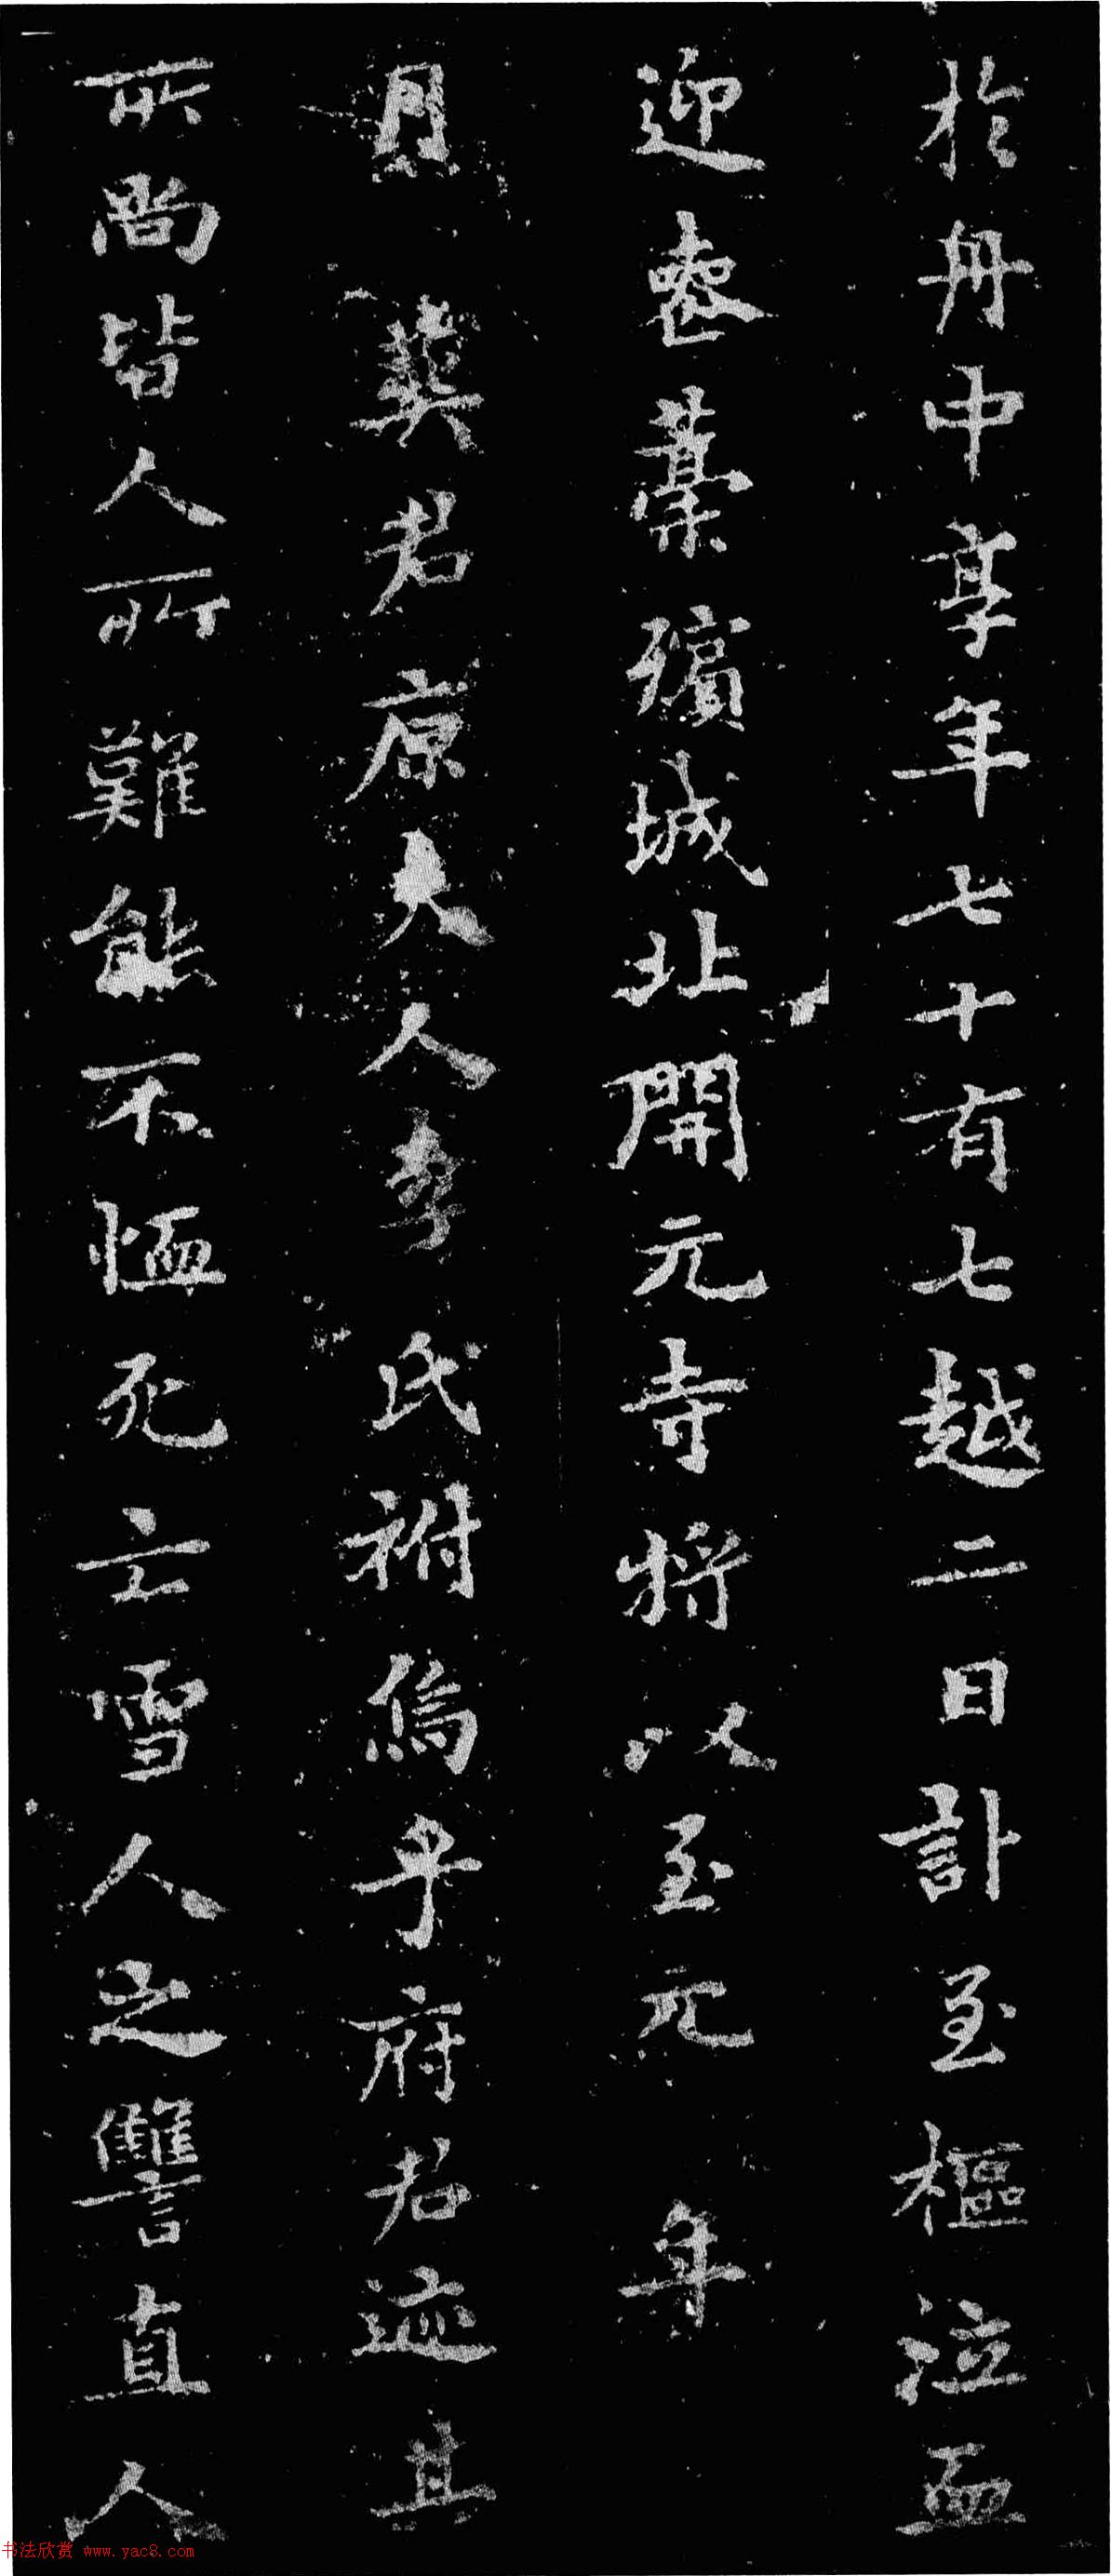 於舟中享年七十有七越二日訃至柩泣血
迎喪藁殯城北開元寺將以至元 年
月 葬君原夫人李氏祔焉乎府君迹其
所尚皆人所難能不恤死亡雪人之讎直人
书法欣赏 www.yac8.com